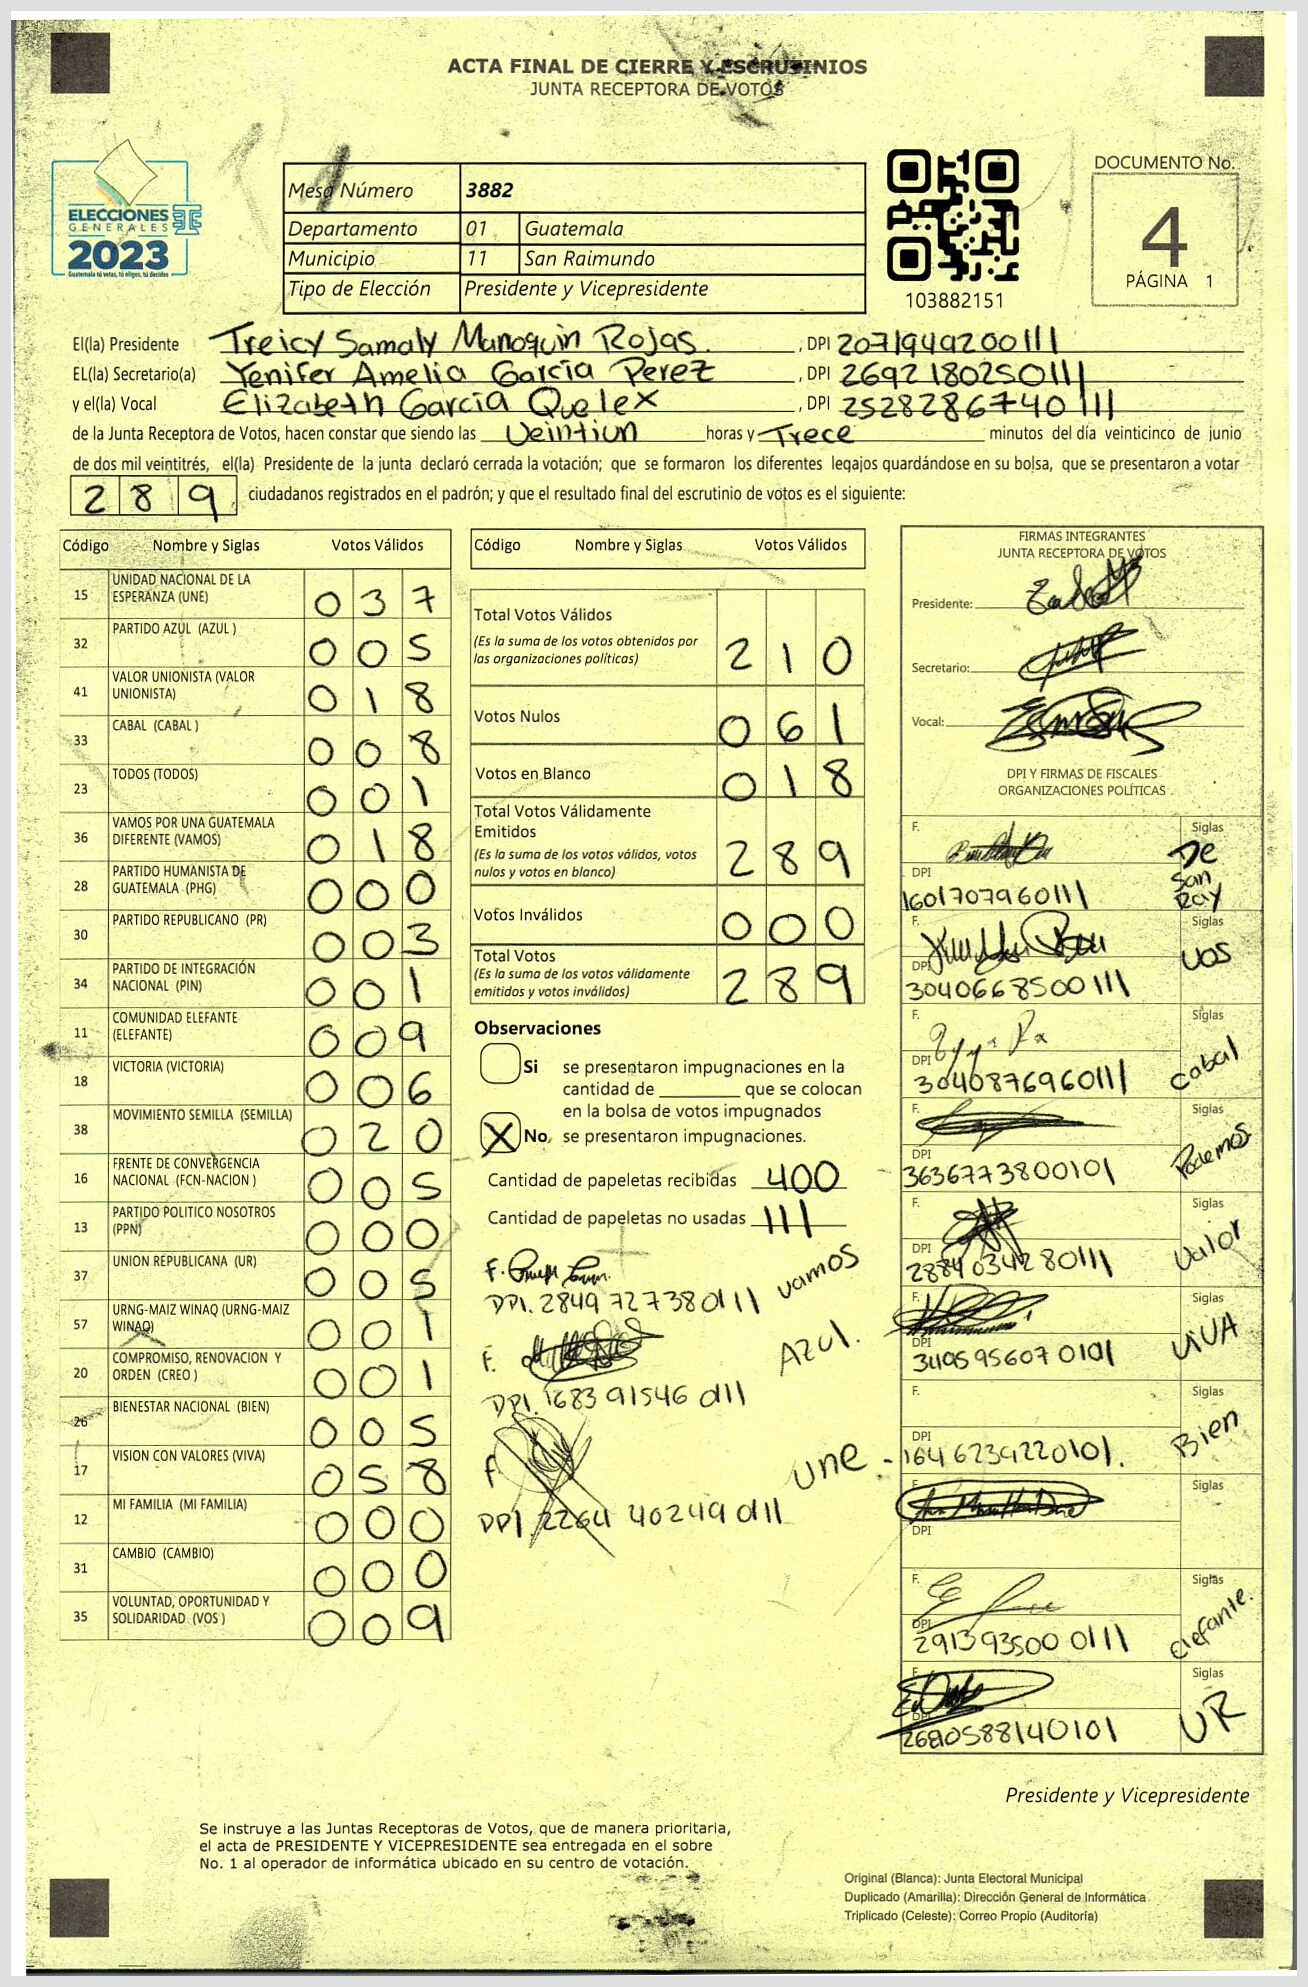 ACTA FINAL DE CIERRE Y ESCRUTINIOS
JUNTA RECEPTORA DE VOTOS
ELECCIONES
GENERALES
2023
Guatemala tú votas, tú eliges, tú decides
Mesa Número 3882
Departamento 01 Guatemala
Municipio 11 San Raimundo
Tipo de Elección Presidente y Vicepresidente
103882151
DOCUMENTO No.
4
PÁGINA 1
El(la) Presidente Treicy Samaly Manoquin Rojas. , DPI 2071949200111
EL(la) Secretario(a) Yenifer Amelia García Perez , DPI 2692180250111
y el(la) Vocal Elizabeth García Quelex , DPI 2528286740111
de la Junta Receptora de Votos, hacen constar que siendo las Veintiun horas y Trece minutos del día veinticinco de junio
de dos mil veintitrés, el(la) Presidente de la junta declaró cerrada la votación; que se formaron los diferentes legajos guardándose en su bolsa, que se presentaron a votar
289 ciudadanos registrados en el padrón; y que el resultado final del escrutinio de votos es el siguiente:
Código Nombre y Siglas Votos Válidos
15 UNIDAD NACIONAL DE LA ESPERANZA (UNE) 037
32 PARTIDO AZUL (AZUL ) 005
41 VALOR UNIONISTA (VALOR UNIONISTA) 018
33 CABAL (CABAL ) 008
23 TODOS (TODOS) 001
36 VAMOS POR UNA GUATEMALA DIFERENTE (VAMOS) 018
28 PARTIDO HUMANISTA DE GUATEMALA (PHG) 000
30 PARTIDO REPUBLICANO (PR) 003
34 PARTIDO DE INTEGRACIÓN NACIONAL (PIN) 001
11 COMUNIDAD ELEFANTE (ELEFANTE) 009
18 VICTORIA (VICTORIA) 006
38 MOVIMIENTO SEMILLA (SEMILLA) 020
16 FRENTE DE CONVERGENCIA NACIONAL (FCN-NACION ) 005
13 PARTIDO POLITICO NOSOTROS (PPN) 000
37 UNION REPUBLICANA (UR) 005
57 URNG-MAIZ WINAQ (URNG-MAIZ WINAQ) 001
20 COMPROMISO, RENOVACION Y ORDEN (CREO ) 001
26 BIENESTAR NACIONAL (BIEN) 005
17 VISION CON VALORES (VIVA) 058
12 MI FAMILIA (MI FAMILIA) 000
31 CAMBIO (CAMBIO) 000
35 VOLUNTAD, OPORTUNIDAD Y SOLIDARIDAD (VOS ) 009
Código Nombre y Siglas Votos Válidos
Total Votos Válidos 210
(Es la suma de los votos obtenidos por
las organizaciones políticas)
Votos Nulos 061
Votos en Blanco 018
Total Votos Válidamente
Emitidos 289
(Es la suma de los votos válidos, votos
nulos y votos en blanco)
Votos Inválidos 000
Total Votos 289
(Es la suma de los votos válidamente
emitidos y votos inválidos)
Observaciones
Si se presentaron impugnaciones en la
cantidad de ________ que se colocan
en la bolsa de votos impugnados
X No, se presentaron impugnaciones.
Cantidad de papeletas recibidas 400
Cantidad de papeletas no usadas 111
F.
DPI. 2849727380111 vamos
F. AZUL.
DPI. 168391546 0111
F. une
DPI. 2264 40249 0111
FIRMAS INTEGRANTES
JUNTA RECEPTORA DE VOTOS
Presidente:
Secretario:
Vocal:
DPI Y FIRMAS DE FISCALES
ORGANIZACIONES POLÍTICAS
F. Siglas
DPI De San Ray
1601707960111
F. Siglas
DPI VOS
3040668500111
F. Siglas
DPI Cabal
3040876960111
F. Siglas
DPI Podemos
3636773800101
F. Siglas
DPI Valor
2884034280111
F. Siglas
DPI ViVA
3405956070101
F. Siglas
DPI Bien
1646234220101.
F. Siglas
DPI
F. Siglas
DPI Elefante.
2913935000111
F. Siglas
DPI UR
2680588140101
Presidente y Vicepresidente
Se instruye a las Juntas Receptoras de Votos, que de manera prioritaria,
el acta de PRESIDENTE Y VICEPRESIDENTE sea entregada en el sobre
No. 1 al operador de informática ubicado en su centro de votación.
Original (Blanca): Junta Electoral Municipal
Duplicado (Amarilla): Dirección General de Informática
Triplicado (Celeste): Correo Propio (Auditoría)